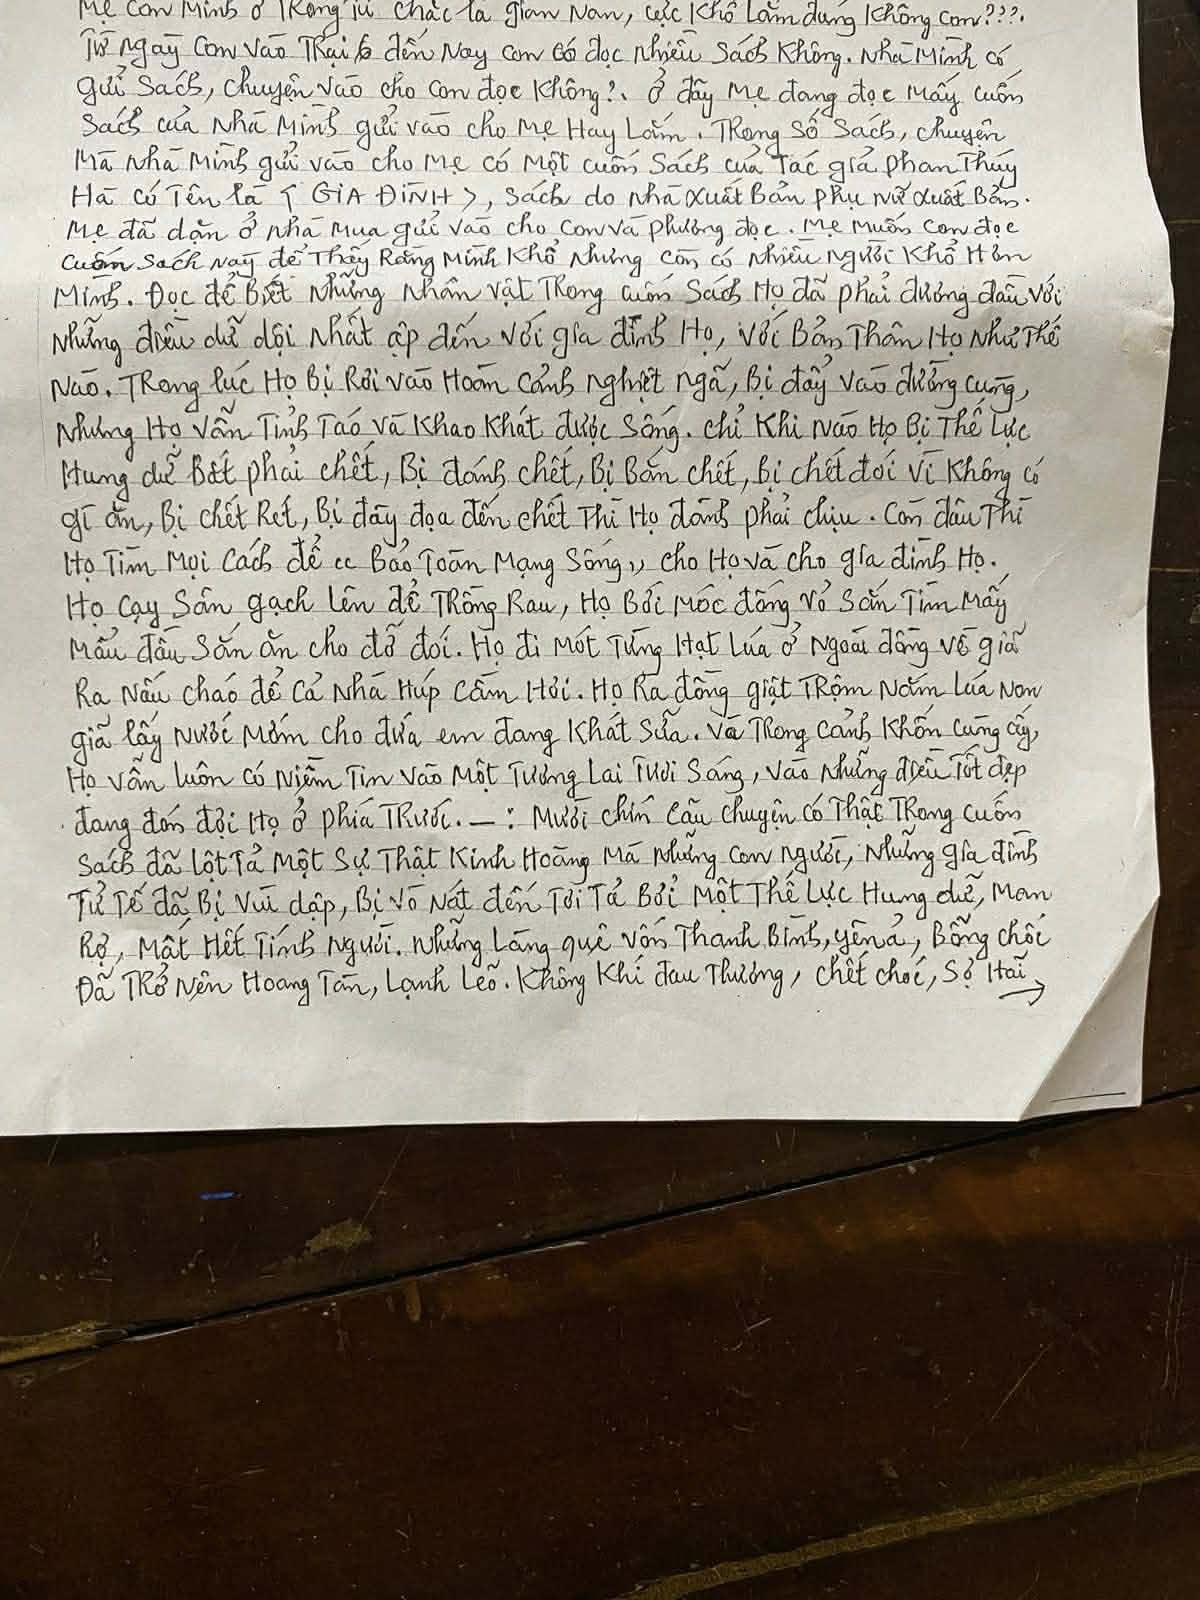 Mẹ con Mình ở Trong tù chắc là gian Nan, cực Khổ Lắm đúng Không con???.
Từ ngày con vào Trại 6 đến Nay con có đọc Nhiều Sách Không. Nhà Mình có
gửi Sách, chuyện vào cho con đọc Không?. Ở đây Mẹ đang đọc Mấy cuốn
Sách của Nhà Mình gửi vào cho Mẹ Hay Lắm. Trong Số Sách, chuyện
Mà Nhà Mình gửi vào cho Mẹ có Một cuốn Sách của Tác giả phan Thúy
Hà có Tên là < GIA ĐÌNH >, Sách do Nhà Xuất Bản Phụ Nữ Xuất Bản.
Mẹ đã dặn ở nhà Mua gửi vào cho con và phương đọc. Mẹ Muốn Con đọc
cuốn Sách Này để Thấy Rằng Mình Khổ Nhưng còn có Nhiều Người Khổ Hơn
Mình. Đọc để Biết Những Nhân vật Trong cuốn Sách Họ đã phải đương đầu với
Những điều dữ dội Nhất ập đến với gia đình Họ, với Bản Thân Họ Như Thế
Nào. Trong lúc Họ Bị Rơi vào Hoàn cảnh Nghiệt Ngã, Bị đẩy vào đường cùng,
Nhưng Họ vẫn Tỉnh Táo và Khao Khát được Sống. chỉ Khi Nào Họ Bị Thế Lực
Hung dữ Bắt phải chết, Bị đánh chết, Bị Bắn chết, Bị chết đói vì Không có
gì ăn, Bị chết Rét, Bị đày đọa đến chết Thì Họ đành phải chịu. Còn đâu Thì
Họ Tìm Mọi Cách để “ Bảo Toàn Mạng Sống,, cho Họ và cho gia đình Họ.
Họ Cạy Sân gạch Lên để Trồng Rau, Họ Bới Móc đống Vỏ Sắn Tìm Mấy
Mẩu đầu Sắn ăn cho đỡ đói. Họ đi Mót Từng Hạt Lúa ở Ngoài đồng về giã
Ra Nấu cháo để Cả Nhà Húp Cầm Hơi. Họ Ra đồng giật Trộm Nắm Lúa Non
giã lấy Nước Mớm cho đứa em đang Khát Sữa. Và Trong cảnh Khốn Cùng ấy,
Họ vẫn luôn có Niềm Tin vào Một Tương Lai Tươi Sáng, vào Những điều Tốt đẹp
đang đón đợi Họ ở phía Trước. — : Mười chín Câu chuyện có Thật Trong cuốn
Sách đã lột Tả Một Sự Thật Kinh Hoàng Mà Những con người, Những gia đình
Tử Tế đã Bị Vùi dập, Bị Vò Nát đến Tơi Tả Bởi Một Thế Lực Hung dữ, Man
Rợ, Mất Hết Tính Người. Những Làng quê vốn Thanh Bình, yên ả, Bỗng chốc
Đã Trở Nên Hoang Tàn, Lạnh Lẽo. Không Khí đau Thương, chết chóc, Sợ Hãi →